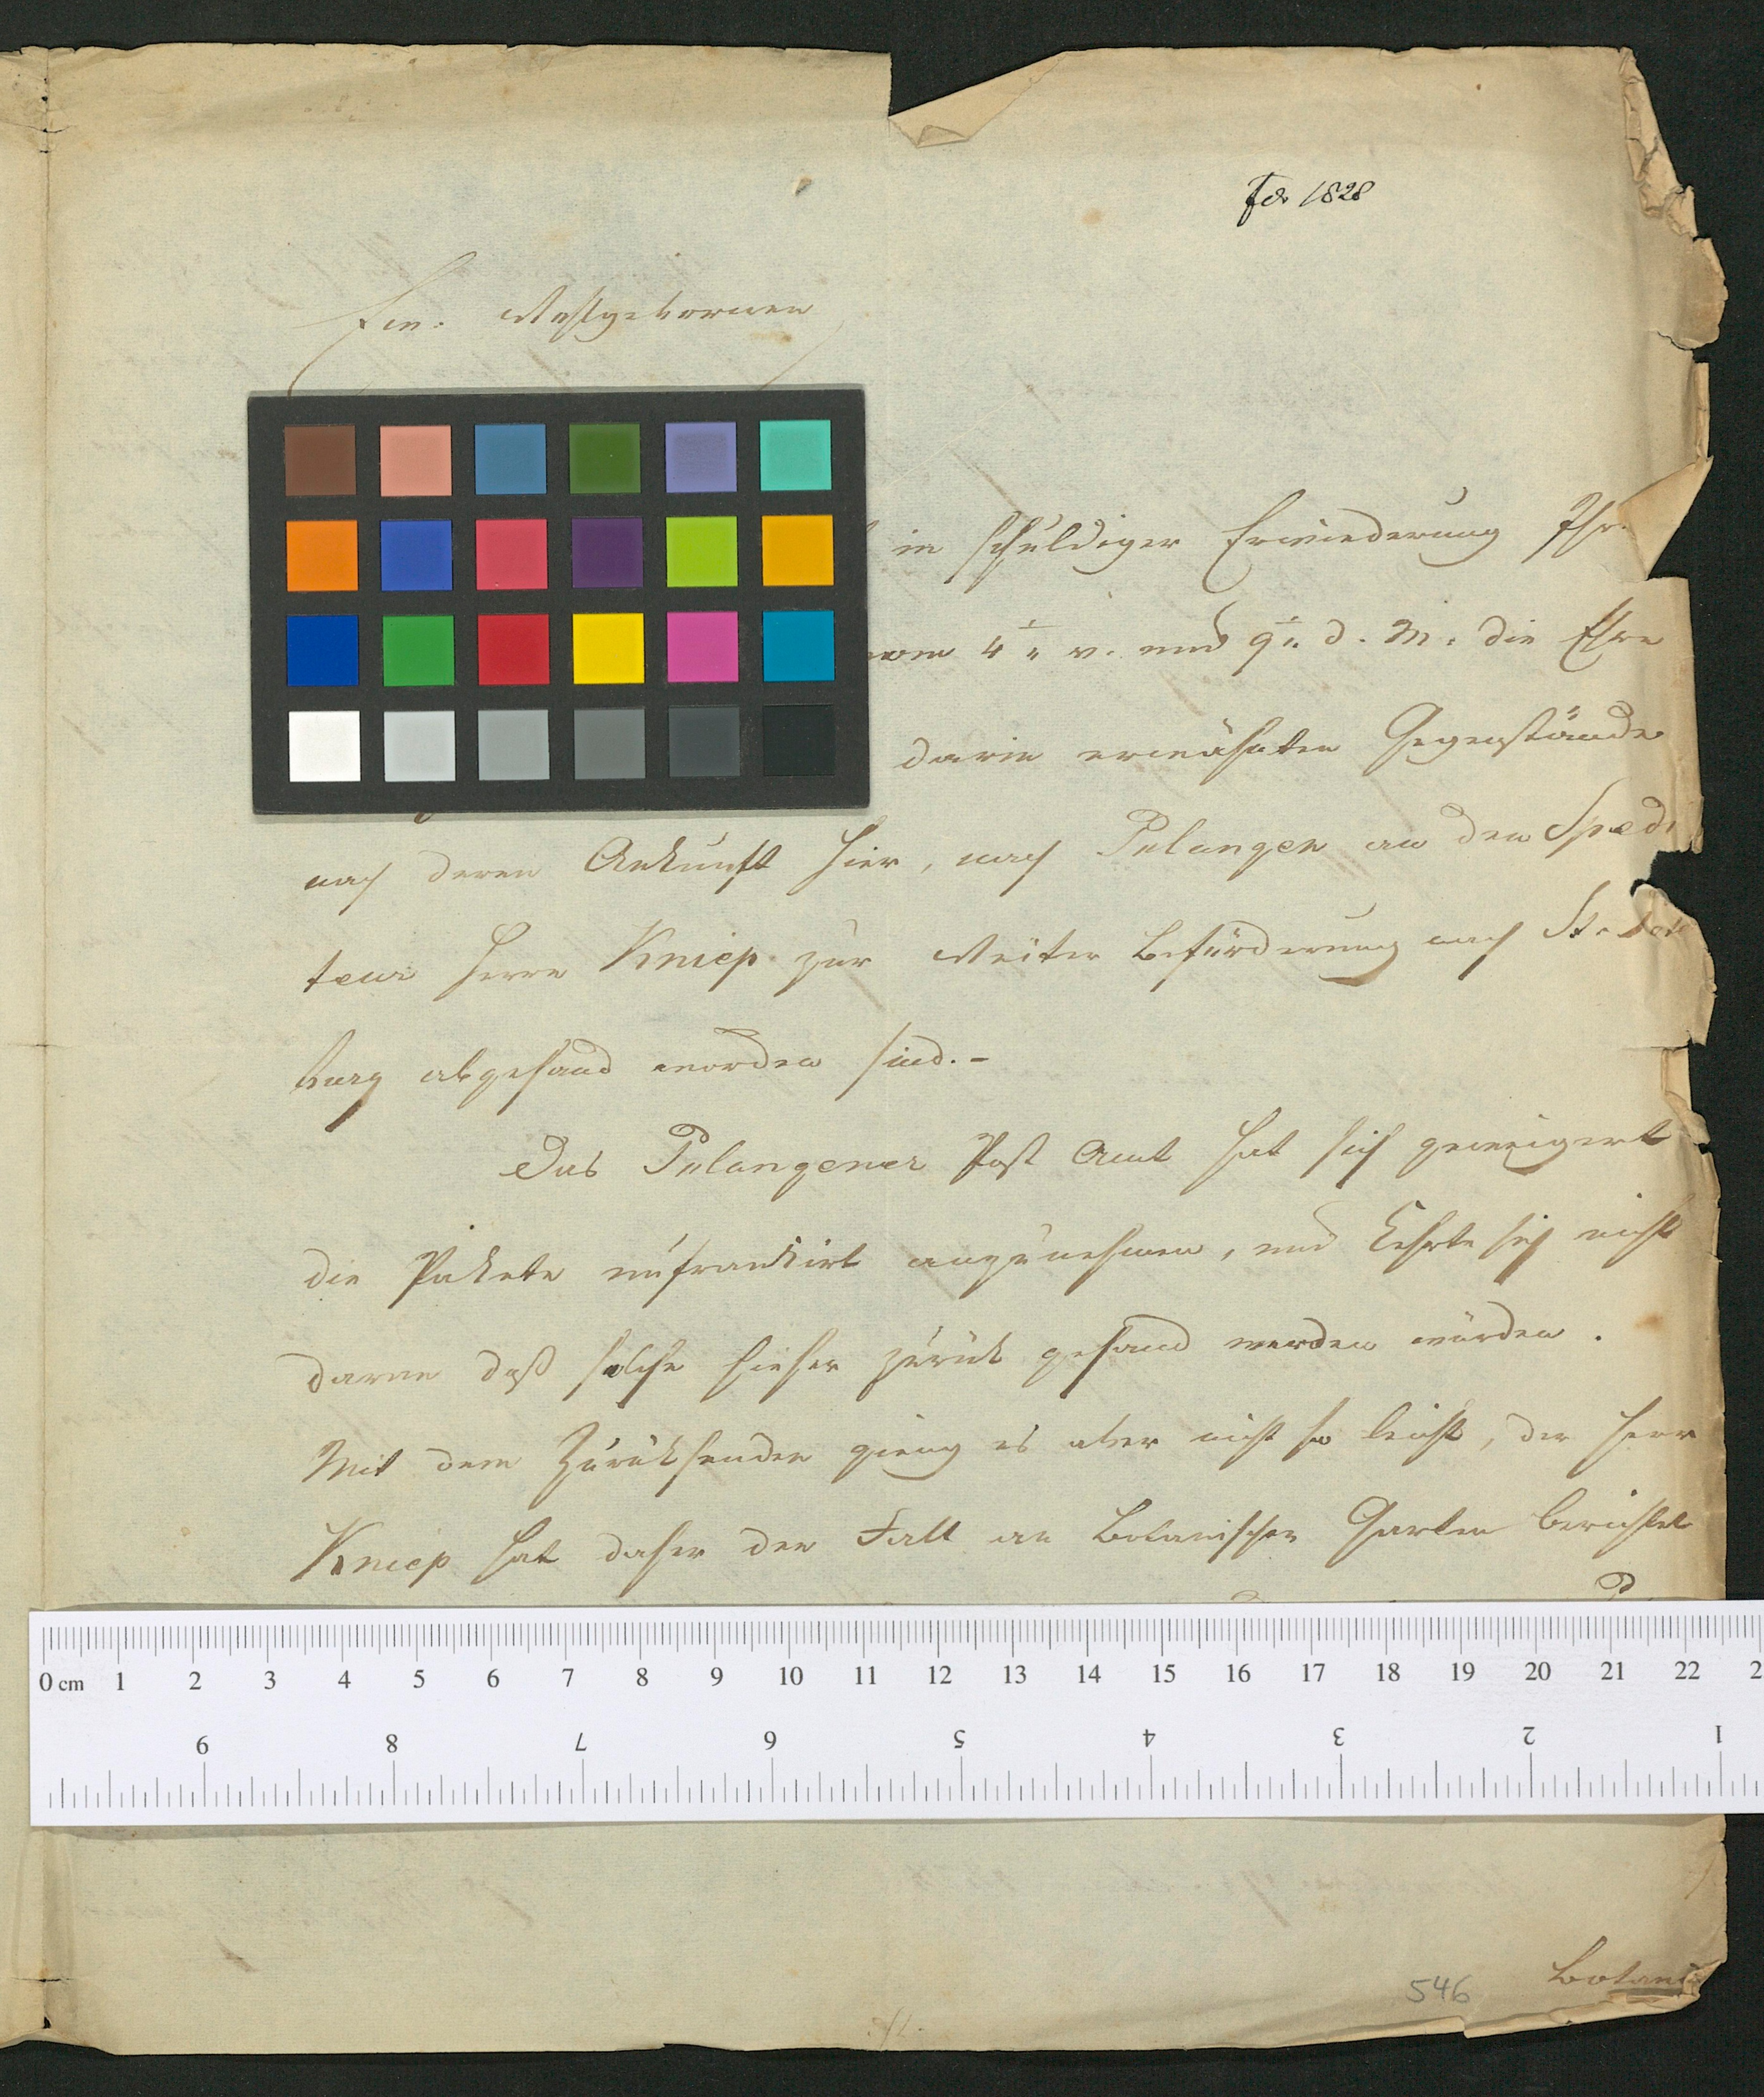 1828
Ew. Wohlgebornen
in schuldiger Erwiederung Ihr
vom 4 v. und 9 d. M. die Ehre
darin erwähnten Gegenstände
nach deren Ankunft hier, nach Polangen an den Spedi
teur Herrn Kniep zur Weiter Beförderung nach St. Pet
burg abgesand worden sind.-
Das Polangener Post Amt hat sich geweigert
die Pakete unfrankirt anzunehmen, und kehrte sich nicht
daran daß solche hieher zurük gesand werden würden.
Mit dem Zurüksenden gieng es aber nicht so leicht, der Herr
Kniep hat daher den Fall an Botanischen Garten berichtet
0 cm 1 2 3 4 5 6 7 8 9 10 11 12 13 14 15 16 17 18 19 20 21 22 2
9 8 7 6 5 4 3 2 1
546 Botani